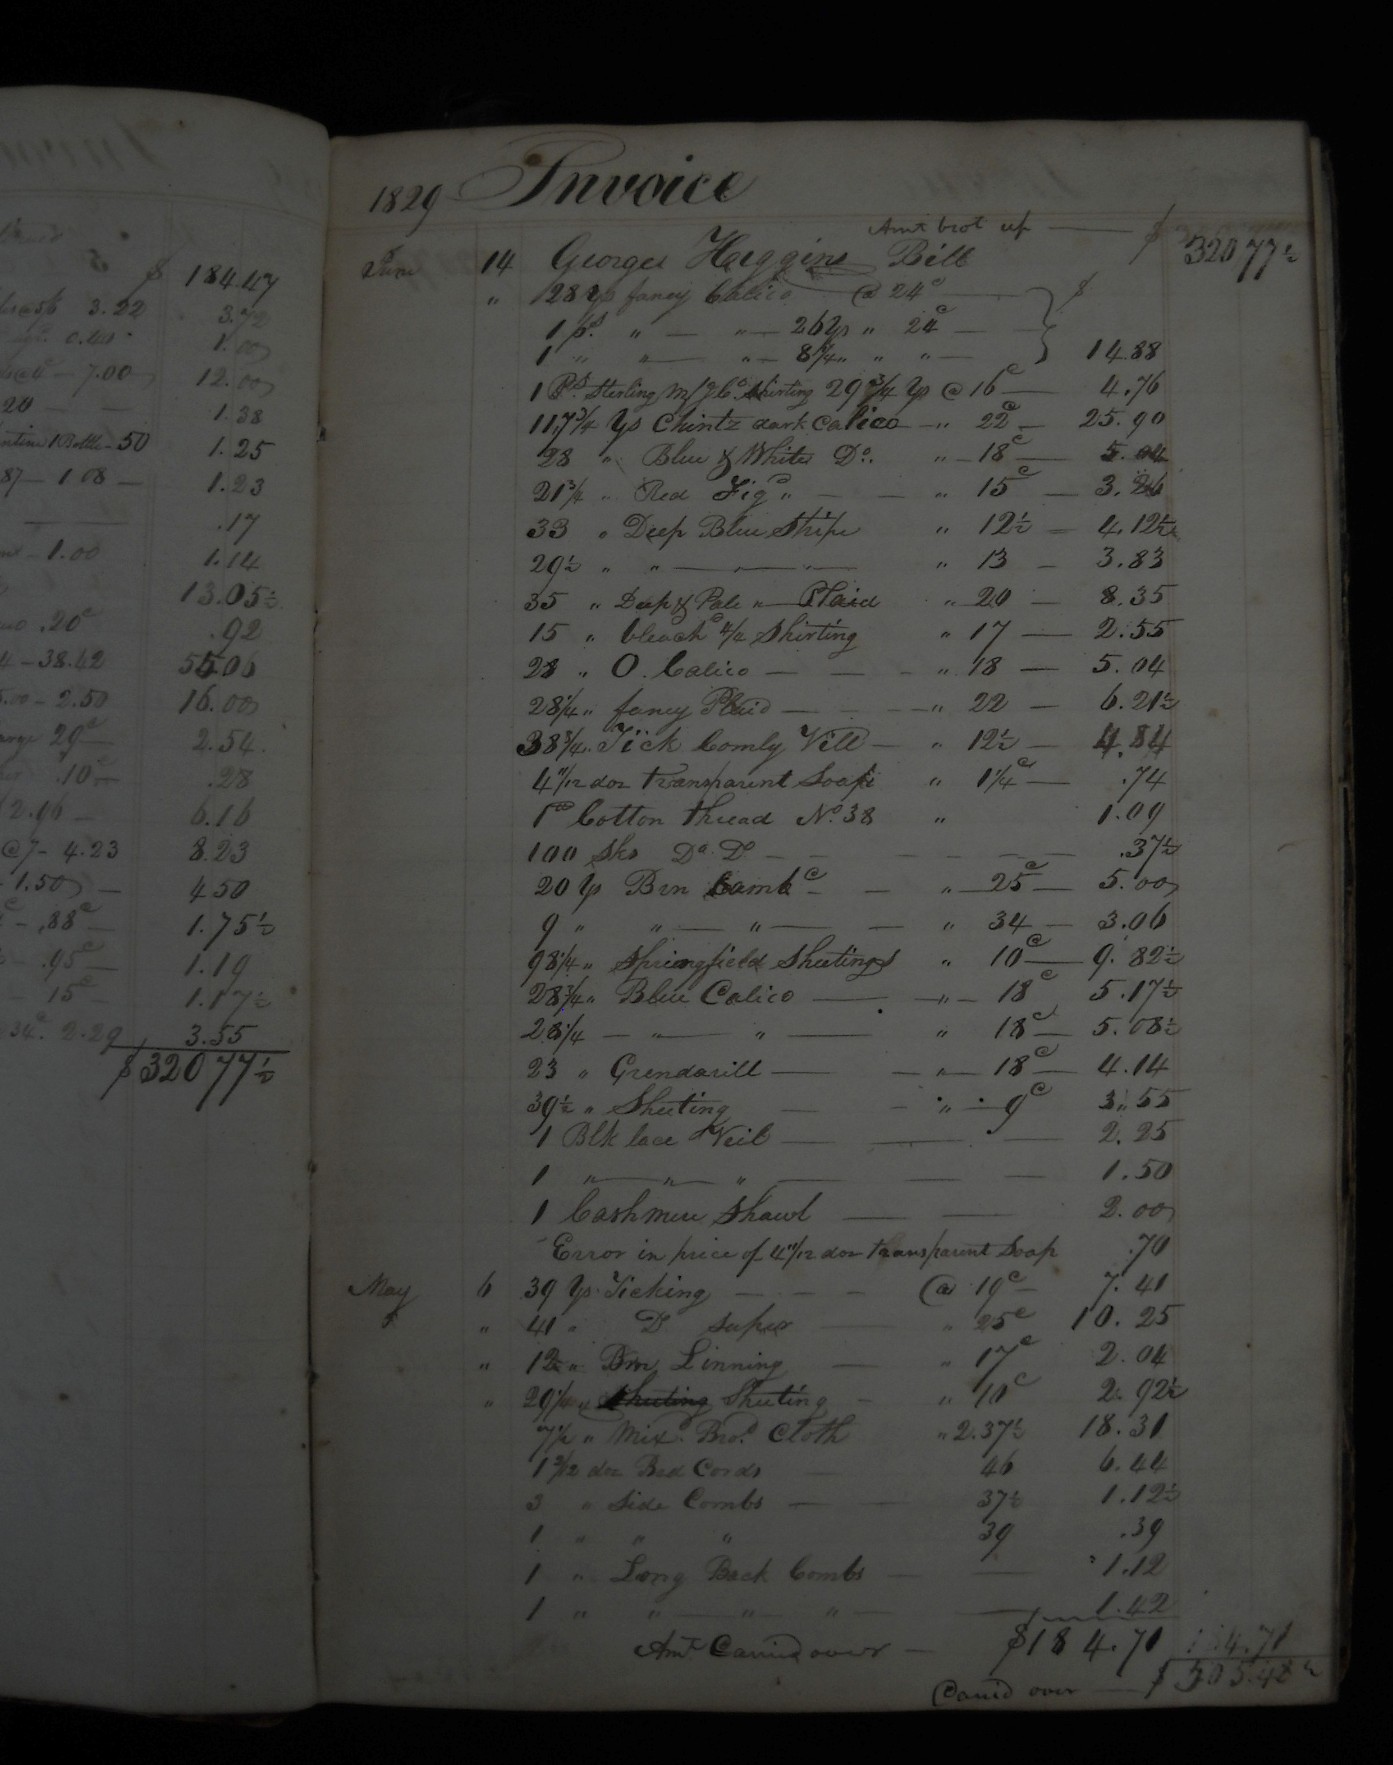 $ 184.47
3.22 3.72
1.00
7.00 12.00
20 1.38
1 Bottle - 50 1.25
87 - 1.08 - 1.23
.17
1.00 1.14
13.05½
.20c .92
4 - 38.42 55.06
5.00 - 2.50 16.00
29c 2.54
.10c .28
2.96 - 6.16
@ 7 - 4.23 8.23
1.50 - 4.50
- .88c - 1.75½
.95c - 1.19
15c - 1.17½
34c. 2.29 3.55
$ 320 77½
1829 Invoice
Amt brot up — $ 320 77½
June 14 Georges Huggins Bill
" 128 Yds fancy Calico @ 24c — $
1 ps. " — " — 26 Yds " 24c —
1 " " — " — 8¾ " " " — } 14.88
1 Ps. Sterling M/f Co. Shirting 29¾ Yds @ 16c — 4.76
117¾ Yds Chintz dark Calico — " 22c — 25.90
28 " Blue & White Do. " — 18c — 5.04
21¾ " Red Figd " — — " 15c — 3.26
33 " Deep Blue Stripe " 12½ — 4.12½
29½ " " — " — " — " 13 — 3.83
35 " Deep & Pale " — Plaid " 20 — 8.35
15 " bleachd 4/4 Shirting " 17 — 2.55
28 " O. Calico — — — " 18 — 5.04
28¼ " fancy Plaid — — — " 22 — 6.21½
38¾ " Tick Comly Vill — " 12½ — 4.84
4 11/12 doz transparent Soap " 1¼c — .74
1 Cotton thread No. 38 " 1.09
100 Sks Do. Do — — — .37½
20 Yds Brn Cambc — — " — 25c — 5.00
9 " " — " — — " 34 — 3.06
98¼ " Springfield Sheetings " 10c — 9.82½
28¾ " Blue Calico — " — 18c 5.17½
28¼ — " — " — " 18c — 5.08½
23 " Grendarill — — " — 18c — 4.14
39½ " Sheeting — — " — 9c 3.55
1 Blk lace Veil — — — 2.25
1 " — " — " — — 1.50
1 Cashmere Shawl — — 2.00
Error in price of 4 11/12 doz transparent Soap .70
May 6 39 Yds Ticking — — — @ 19c — 7.41
" 41 " Do super — " 25c 10.25
" 12 " Brn Linning — " 17c 2.04
" 29¼ " Sheeting Sheeting — " 10c 2.92½
7½ " Mixd. Brod. Cloth " 2.37½ 18.31
1 2/12 doz Bed Cords — 46 6.44
3 " Side Combs — — 37½ 1.12½
1 " " " 39 .39
1 " Long Back Combs — — 1.12
1 " " — " — " — — 1.42
Amt. Carried over — $184.71 184.71
Carrd over — $ 505.48½